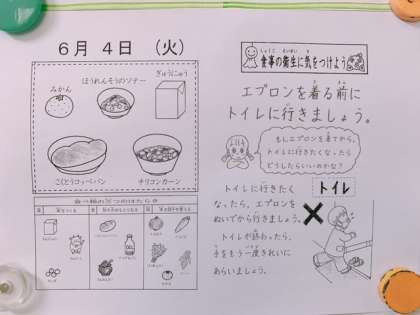 6月 4日 （火）
ほうれんそうのソテー
ぎゅうにゅう
みかん
こくとうコッペパン
チリコンカーン
しょくじ えいせい き
食事の衛生に気をつけよう
エプロンを着る前に
トイレに行きましょう。
もしエプロンを着てから、
トイレに行きたくなったら
どうしたらいいのかな？
トイレに行きたく
なったら、エプロンを
ぬいでから行きましょう。
トイレが終わったら、
手をもう一度きれいに
あらいましょう。
トイレ